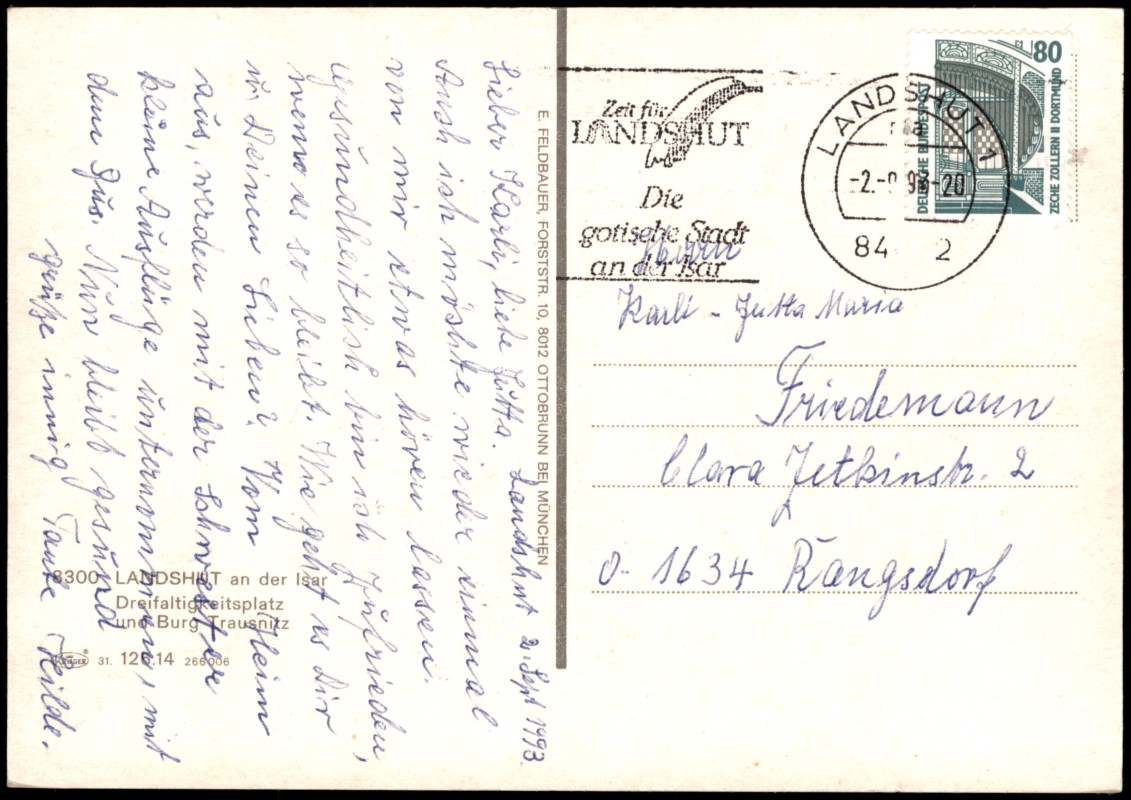 Landshut 2. Sept 1993.
Lieber Karli, liebe Jutta.
Auch ich möchte wieder einmal
von mir etwas hören lassen.
Gesundheitlich bin ich zufrieden,
wenn es so bleibt. Wie geht es Dir
u. Deinen Lieben? Vom Heim
aus, werden mit der Schwester
kleine Ausflüge unternommen, mit
dem Bus. Nun bleibt gesund
grüße innig Tante Hilde.
E. FELDBAUER, FORSTSTR. 10, 8012 OTTOBRUNN BEI MÜNCHEN
8300 LANDSHUT an der Isar
Dreifaltigkeitsplatz
und Burg Trausnitz
KRÜGER 31. 126.14 266006
Zeit für
LANDSHUT
Die
gotische Stadt
an der Isar
LANDSHUT 1
-2.-9.93-20
84 2
80
DEUTSCHE BUNDESPOST
ZECHE ZOLLERN II DORTMUND
Karli - Jutta Maria
Friedemann
Clara Zetkinstr. 2
O-1634 Rangsdorf